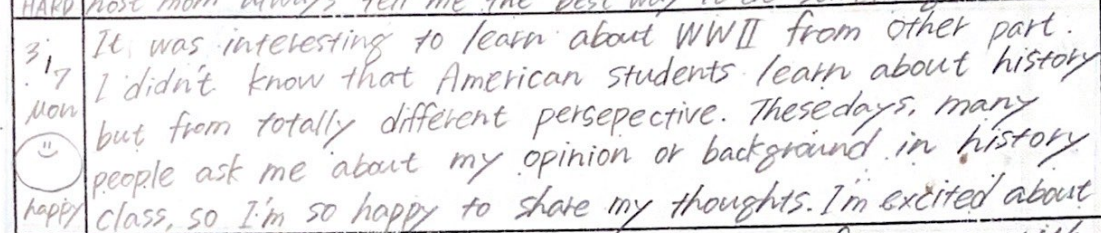 HARD host mom always tell me the best way to
3/17 It was interesting to learn about WWII from other part.
I didn't know that American students learn about history
Mon but from totally different persepective. Thesedays, many
people ask me about my opinion or background in history
happy class, so I'm so happy to share my thoughts. I'm excited about